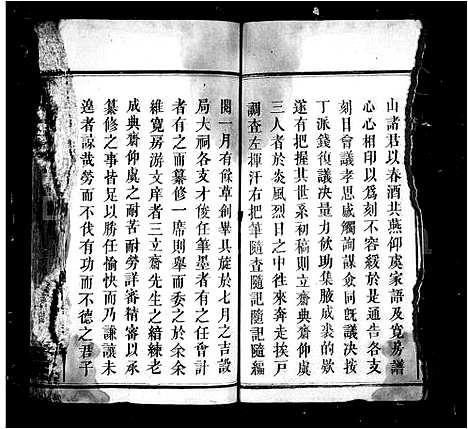 山諸君以春酒共燕仰虞家語及寬房譜
心心相印以為刻不容緩於是通告各支
刻日會議孝思感觸詢謀僉同既議決按
丁派錢復議決量力飲助集腋成裘的欵
遂有把握其世系初稿則立齋典齋仰虞
三人者於炎風烈日之中往來奔走挨戶
調查左揮汗右把筆隨查隨記隨編
閱一月有餘草創畢具旋於七月之吉設
局大祠各支才俊任筆墨者有之任會計
者有之而纂修一席則舉而委之於余余
維寬房游文庠者三立齋先生之績練老
成典齋仰虞之耐苦耐勞詳審精審以承
纂修之事皆足以勝任愉快而乃謙讓未
遑者諒哉勞而不伐有功而不德之君子